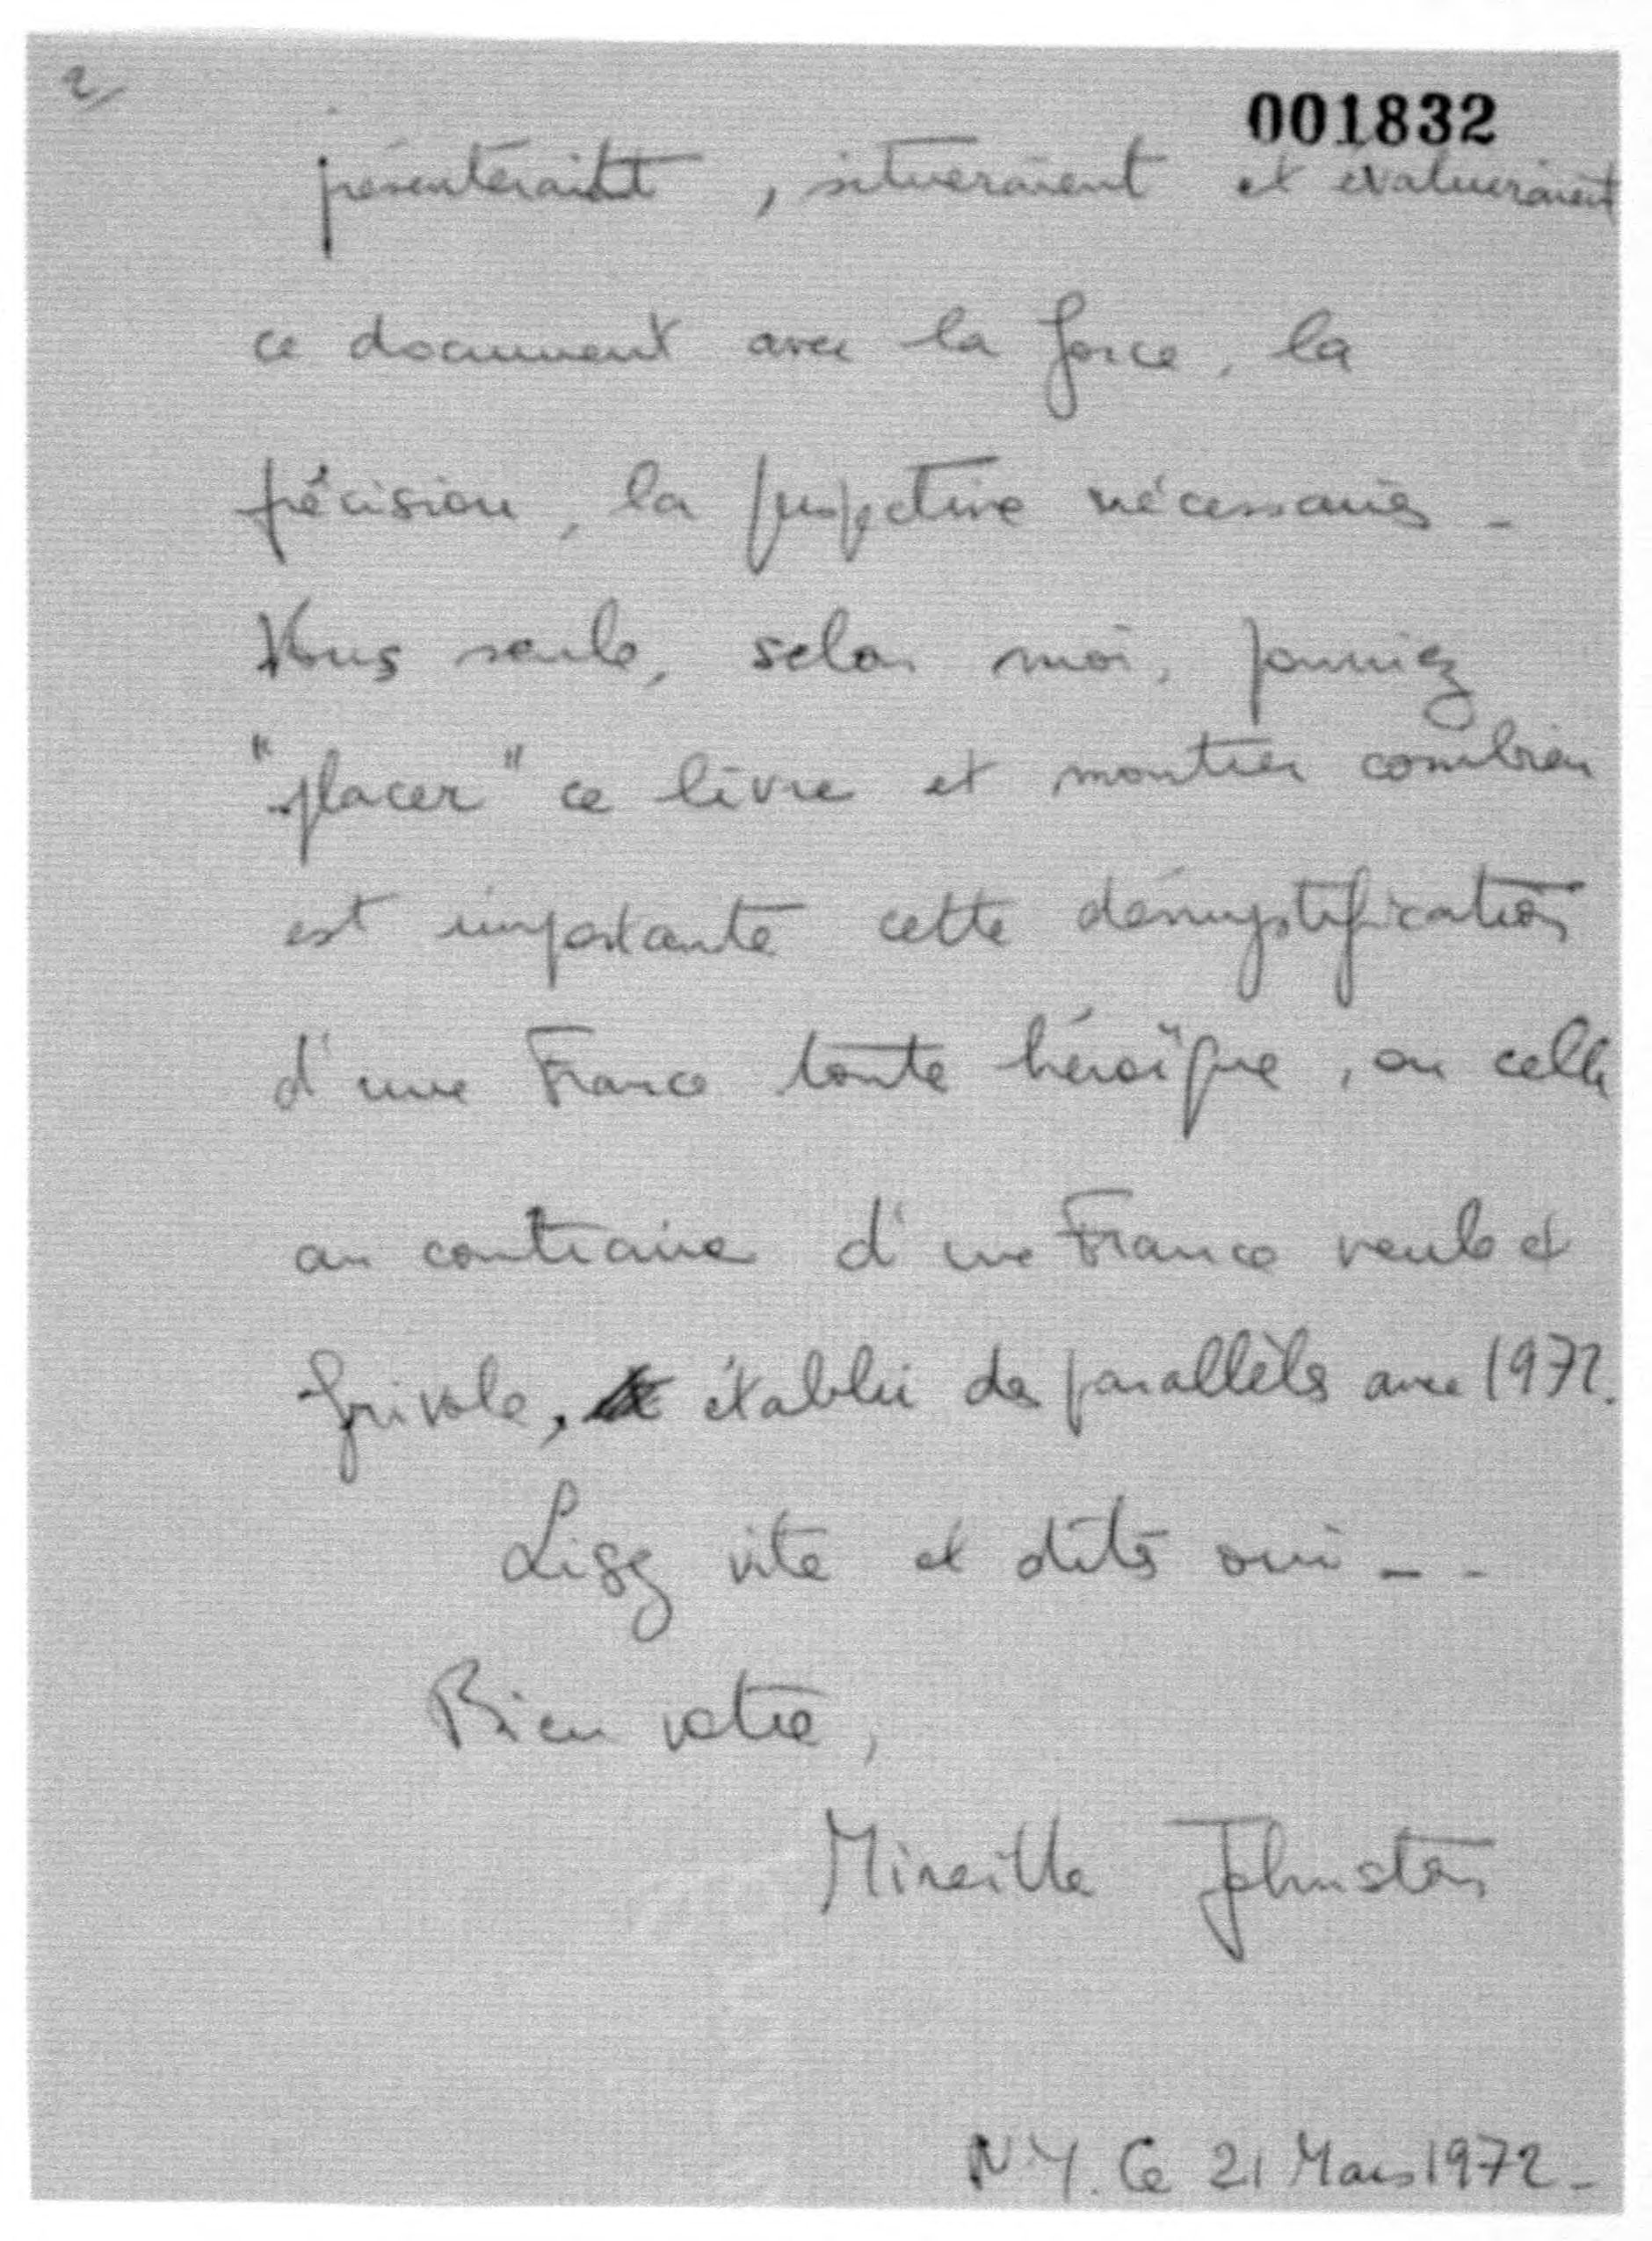 2/
001832
présenteraient, situeraient et évalueraient
ce document avec la force, la
précision, la perspective nécessaires -
Vous seule, selon moi, pourriez
"placer" ce livre et montrer combien
est importante cette démystification
d'une France toute héroïque, ou celle
au contraire d'une France veule et
frivole, établir des parallèles avec 1972.
Lisez vite et dites oui - -
Bien vôtre,
Mireille Johnston
N Y. Ce 21 Mars 1972 -